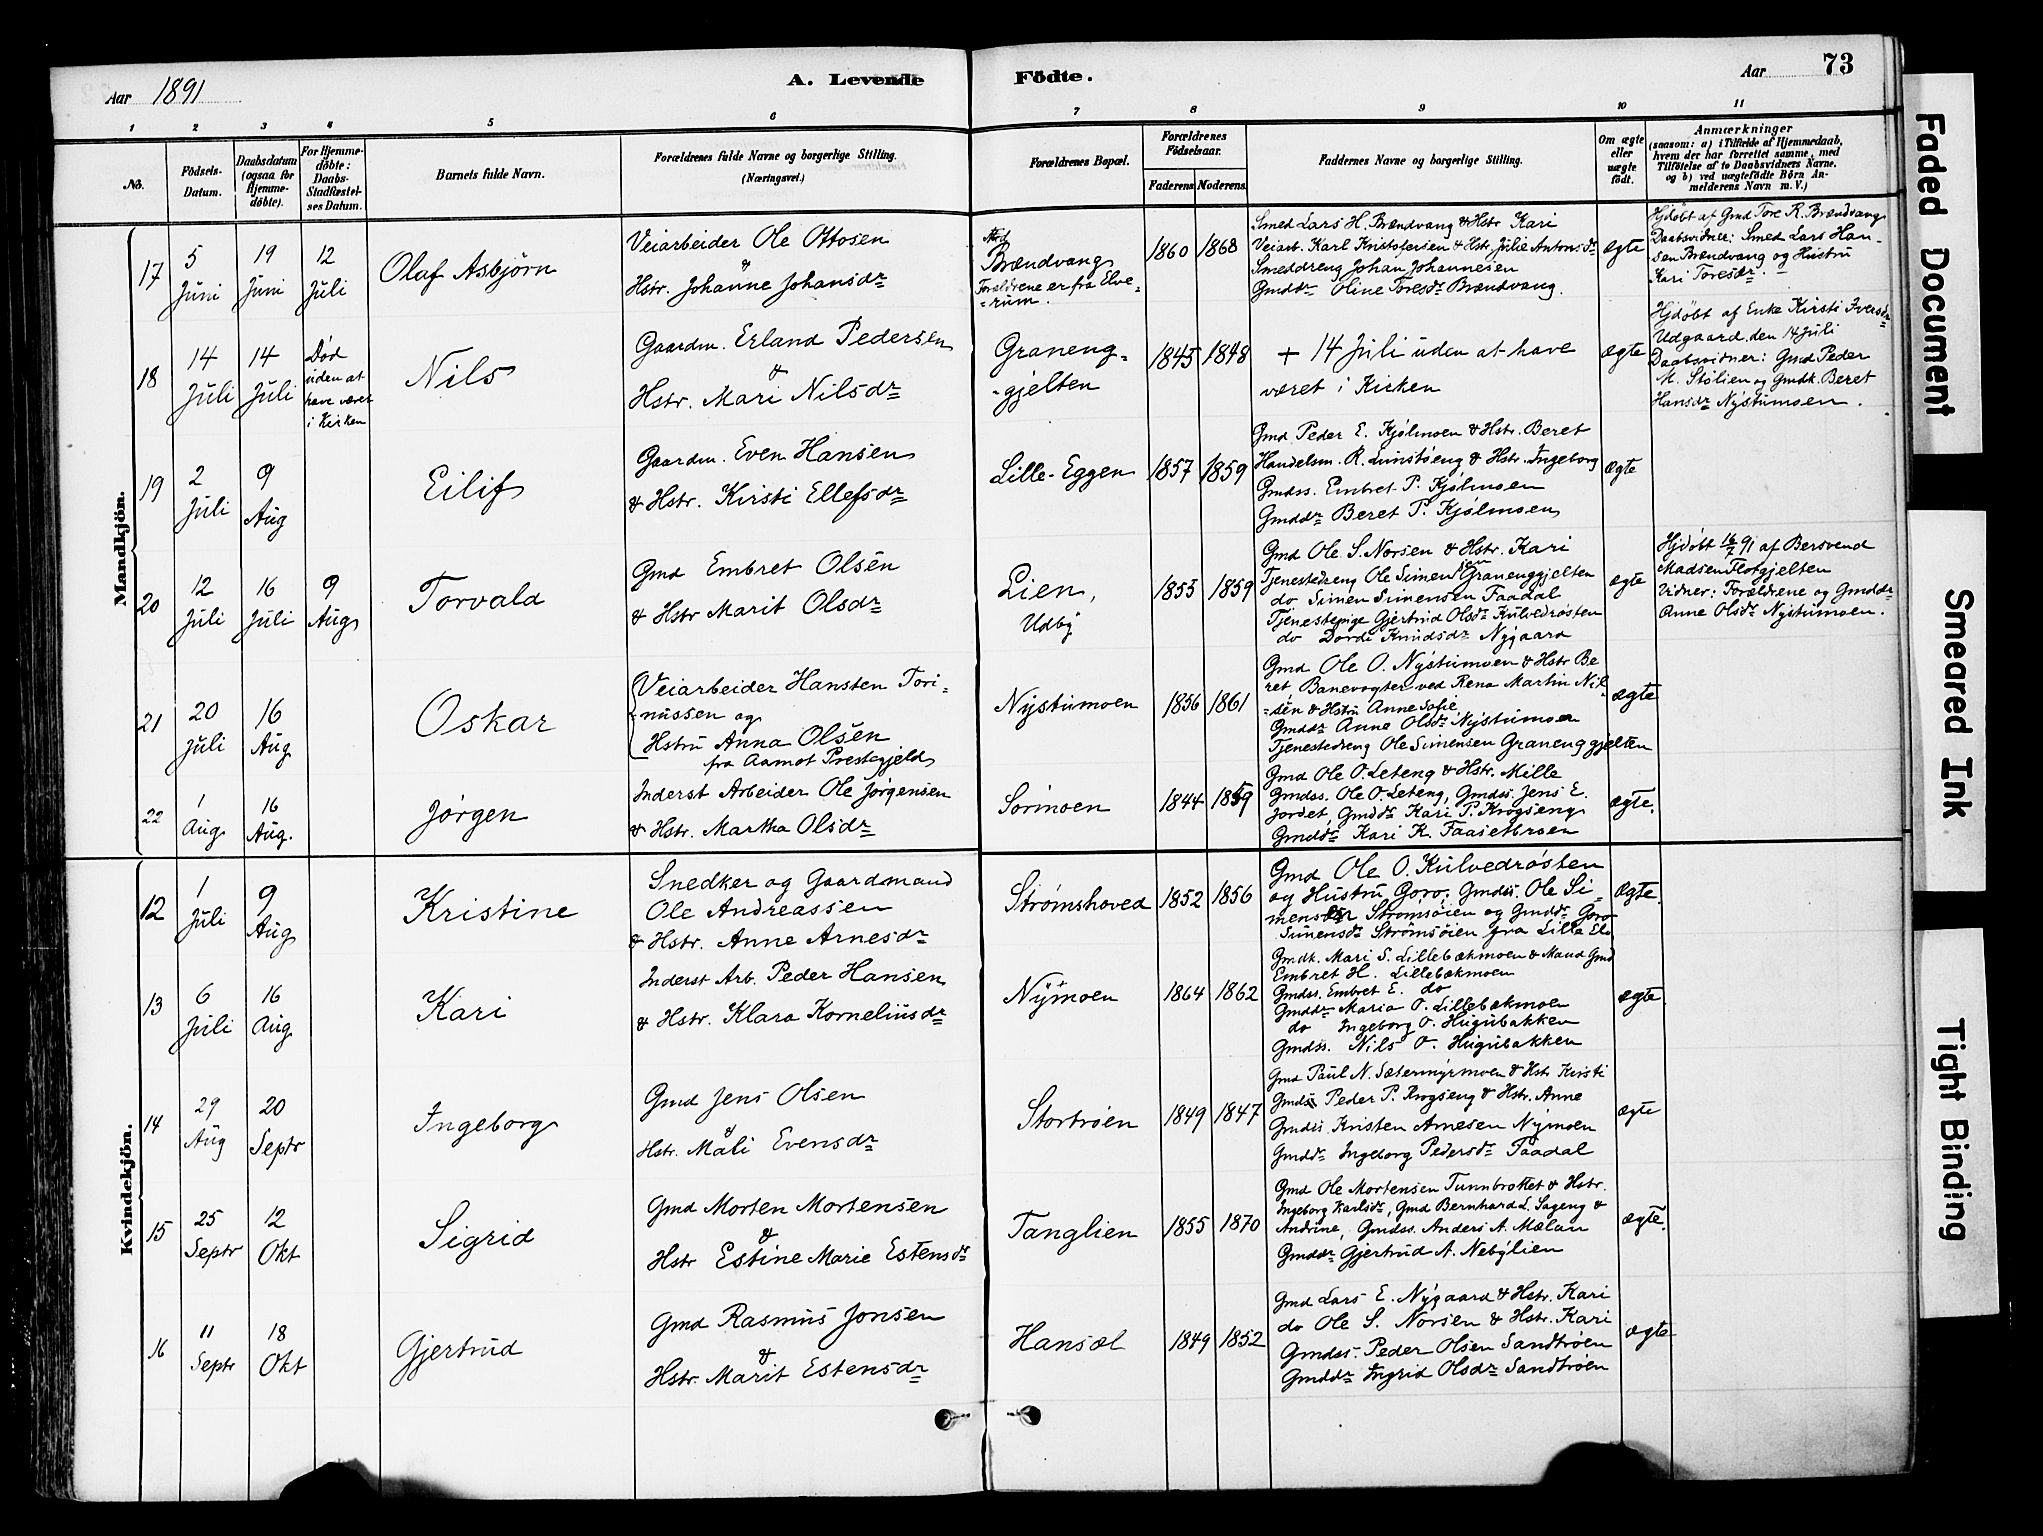 Aar 1891
A. Levende Födte.
Aar 73
1 2 3 4 5 6 7 8 9 10 11
No.
Födsels-Datum.
Daabsdatum (ogsaa for Hjemme-döbte).
For Hjemme-döbte: Daabs-Stadfæstel-ses Datum.
Barnets fulde Navn.
Forældrenes fulde Navne og borgerlige Stilling.
(Næringsvei.)
Forældrenes Bopæl.
Forældrenes Födselsaar.
Faderens Moderens
Faddernes Navne og borgerlige Stilling.
Om ægte eller uægte födt.
Anmærkninger
(saasom: a) i Tilfælde af Hjemmedaab,
hvem der har forrettet samme, med
Tilföielse af to Daabsvidners Navne,
og b) ved uægtefödte Börn An-
melderens Navn m. V.)
Mandkjön.
17
5 Juni
19 Juni
12 Juli
Olaf Asbjörn
Veiarbeider Ole Ottosen
&
Hstr. Johanne Johansdr
Brændvang
Forældrene er fra Elve-
-rum.
1860 1868
Smed Lars H. Brændvang & Hstr Kari
Veiarb. Karl Kristofersen & Hstr. Julie Antonsdr
Smeddreng Johan Johannesen
Gmddr Oline Toresdr Brændvang.
ægte
Hjdöbt af Gmd Tore R. Brændvang
Daabsvidner: Smed Lars Han-
sen Brændvang og Hustru
Kari Toresdr.
18
14 Juli
14 Juli
Död
uden at
have været
i Kirken
Nils
Gaardm. Erland Pedersen
&
Hstr. Mari Nilsdr
Graneng-
-gjelten
1845 1848
+ 14 Juli uden at have
været i Kirken
ægte
Hjdöbt af Enke Kirsti Iversdr
Udgaard den 14 Juli
Daabsvidner: Gmd Peder
M. Stølien og Gmdk. Beret
Hansdr Nystumoen.
19
2 Juli
9 Aug
Eilif
Gaardm. Even Hansen
& Hstr. Kirsti Ellefsdr
Lille-Eggen
1857 1859
Gmd Peder E. Kjølmoen & Hstr. Beret
Handelsm. R. Lunstøeng & Hstr. Ingeborg
Gmdss. Embret P. Kjølmoen
Gmddr Beret P. Kjølmoen
ægte
20
12 Juli
16 Juli
9 Aug
Torvald
Gmd Embret Olsen
& Hstr Marit Olsdr
Lien,
Udby
1855 1859
Gmd Ole S. Norsen & Hstr. Kari
Tjenestedreng Ole Simensen Granenggjelten
do Simen Simensen Faadal
Tjenestepige Gjertrud Olsdr Kulvedrøsten
do Dorde Knudsdr Nygaard
ægte
Hjdöbt 16/7 91 af Bersvend
Madsen Flotgjelten
Vidner: Forældrene og Gmddr
Anne Olsdr Nystumoen.
21
20 Juli
16 Aug
Oskar
Veiarbeider Hansten Tori-
-nussen og
Hstru Anna Olsen
fra Aamot Prestegjeld
Nystumoen
1856 1861
Gmd Ole O. Nystumoen & Hstr Be
ret, Banevogter ved Rena Martin Nil-
-sen & Hstru Anne Sofie
Gmddr Anne Olsdr Nystumoen
Tjenestedreng Ole Simensen Granenggjelten
ægte
22
1 Aug
16 Aug.
Jørgen
Inderst Arbeider Ole Jørgensen
& Hstr. Martha Olsdr
Sørmoen
1844 1859
Gmd Ole O. Leteng & Hstr. Mille
Gmdss. Ole O. Leteng, Gmdss. Jens E.
Jordet, Gmddr Kari P. Krogseng
Gmddr Kari K. Faasetbroen
ægte.
Kvindekjön.
12
1 Juli
9 Aug
Kristine
Snedker og Gaardmand
Ole Andreassen
& Hstr. Anne Arnesdr
Strømshoved
1852 1856
Gmd Ole O. Kulvedrøsten
og Hustru Goro, Gmdss. Ole Si-
mensen Strømsøien og Gmddr Goro
Simensdr Strømsøien fra Lille Elv
Ægte.
13
6 Juli
16 Aug
Kari
Inderst Arb. Peder Hansen
& Hstr. Klara Korneliusdr
Nymoen
1864 1862
Gmdk. Mari S. Lillebækmoen & Mand Gmd
Embret H. Lillebækmoen
Gmdss. Embret E. do
Gmddr Maria O. Lillebækmoen
do Ingeborg O. Hugubakken
Gmdss. Nils O. Hugubakken
ægte.
14
29 Aug
20 Septr
Ingeborg
Gmd Jens Olsen
&
Hstr. Mali Evensdr
Stortrøen
1849 1847
Gmd Paul N. Sætermyrmoen & Hstr Kirsti
Gmds Peder P. Krogseng & Hstr. Anne
Gmdss Kristen Arnesen Nymoen
Gmddr Ingeborg Pedersdr Faadal
ægte
15
25 Septr
12 Okt
Sigrid
Gmd Morten Mortensen
&
Hstr Estine Marie Estensdr
Tanglien
1855 1870
Gmd Ole Mortensen Tunnbrottet & Hstr.
Ingeborg Karlsdr, Gmd Bernhard L. Sageng &
Andrine, Gmdss. Anders A. Mælan
Gmddr Gjertrud A. Nebylien
ægte.
16
11 Septr
18 Okt
Gjertrud
Gmd Rasmus Jonsen
&
Hstr. Marit Estensdr
Hansæl
1849 1852
Gmd Lars E. Nygaard & Hstr. Kari
do Ole S. Norsen & Hstr. Kari
Gmdss. Peder Olsen Sandtrøen
Gmddr Ingrid Olsdr Sandtrøen
ægte
Faded Document
Smeared Ink
Tight Binding